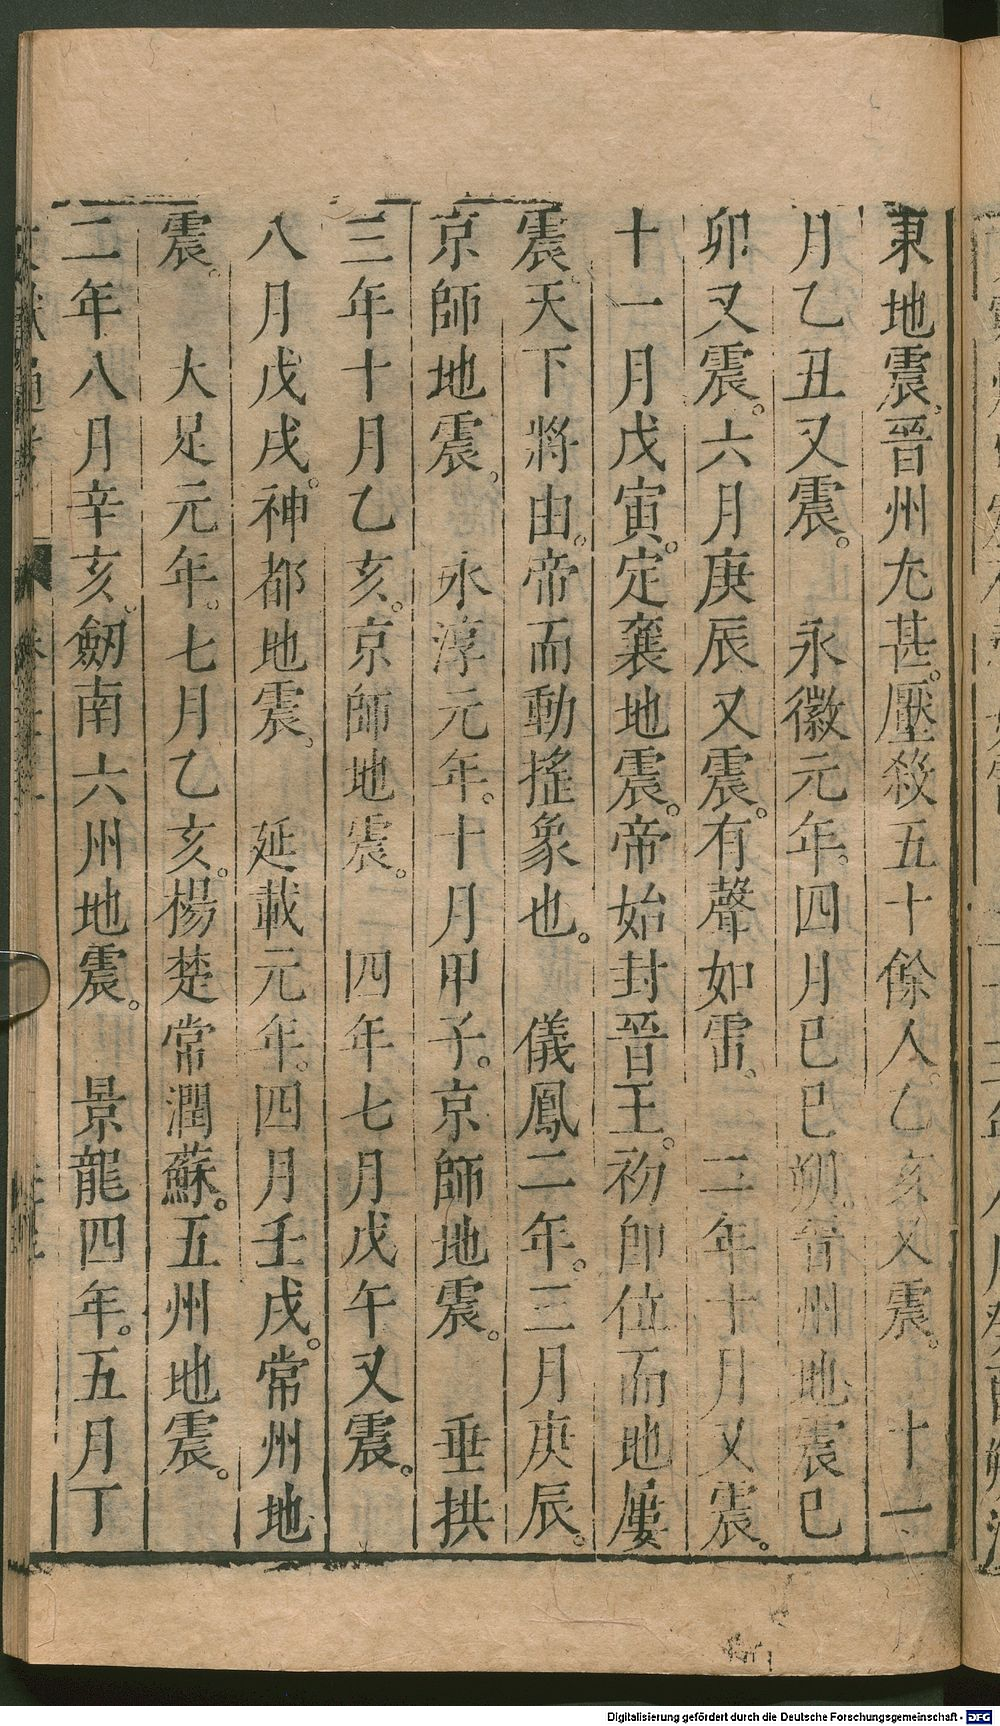 東地震。晉州尤甚。壓殺五十餘人。乙亥又震。　十一
月乙丑又震。　永徽元年。四月巳巳朔。晉州地震巳
卯又震。六月庚辰又震。有聲如雷。　二年十月又震。
十一月戊寅。定襄地震。帝始封晉王。初卽位而地屢
震。天下將由。帝而動搖象也。　儀鳳二年。三月庚辰。
京師地震。　永淳元年。十月甲子。京師地震。　垂拱
三年十月乙亥。京師地震。　四年七月戊午又震。
八月戊戌。神都地震。　延載元年。四月壬戌。常州地
震。　大足元年。七月乙亥。楊楚常潤蘇。五州地震。
二年八月辛亥。劒南六州地震。　景龍四年。五月丁
Digitalisierung gefördert durch die Deutsche Forschungsgemeinschaft - DFG